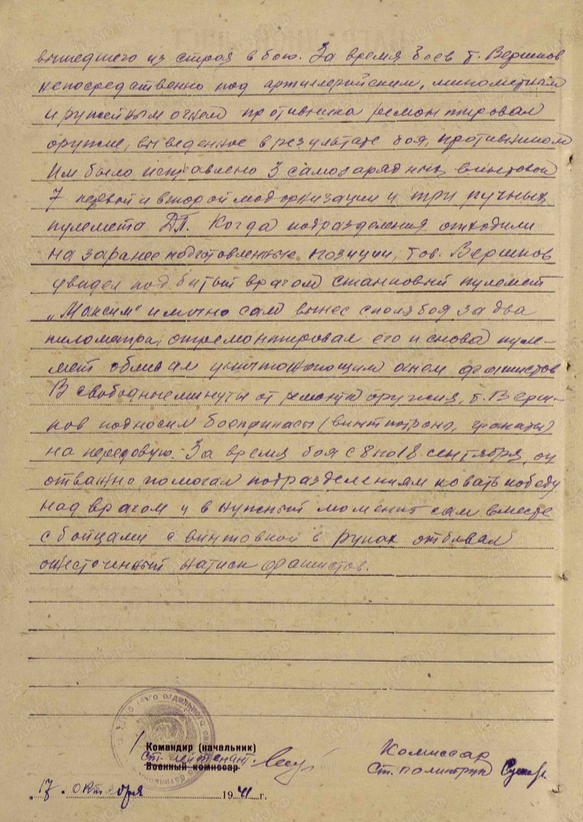 вышедшего из строя в бою. За время боев т. Вершков
непосредственно под артиллерийским, минометным
и ружейным огнем противника ремонтировал
оружие, выведенное в результате боя, противником
Им было исправлено 3 самозарядных винтовки
7 первой и второй модернизации и три ручных
пулемета ДП. Когда подразделения отходили
на заранее подготовленные позиции, тов. Вершков
увидел подбитый врагом станковый пулемет
„Максим" и лично сам вынес с поля боя за два
километра, отремонтировал его и снова пуле-
мет обливал уничтожающим огнем фашистов
В свободные минуты от ремонта оружия, т. Верш-
ков подносил боеприпасы (винтпатроны, гранаты)
на передовую. За время боя с 8 по 18 сентября, он
отважно помогал подразделениям ковать победу
над врагом и в нужный момент сам вместе
с бойцами с винтовкой в руках отбивал
ожесточенный натиск фашистов.
Командир (начальник)
Ст. лейтенант
Военный комиссар
Комиссар
Ст. политрук
17. октября 1941 г.